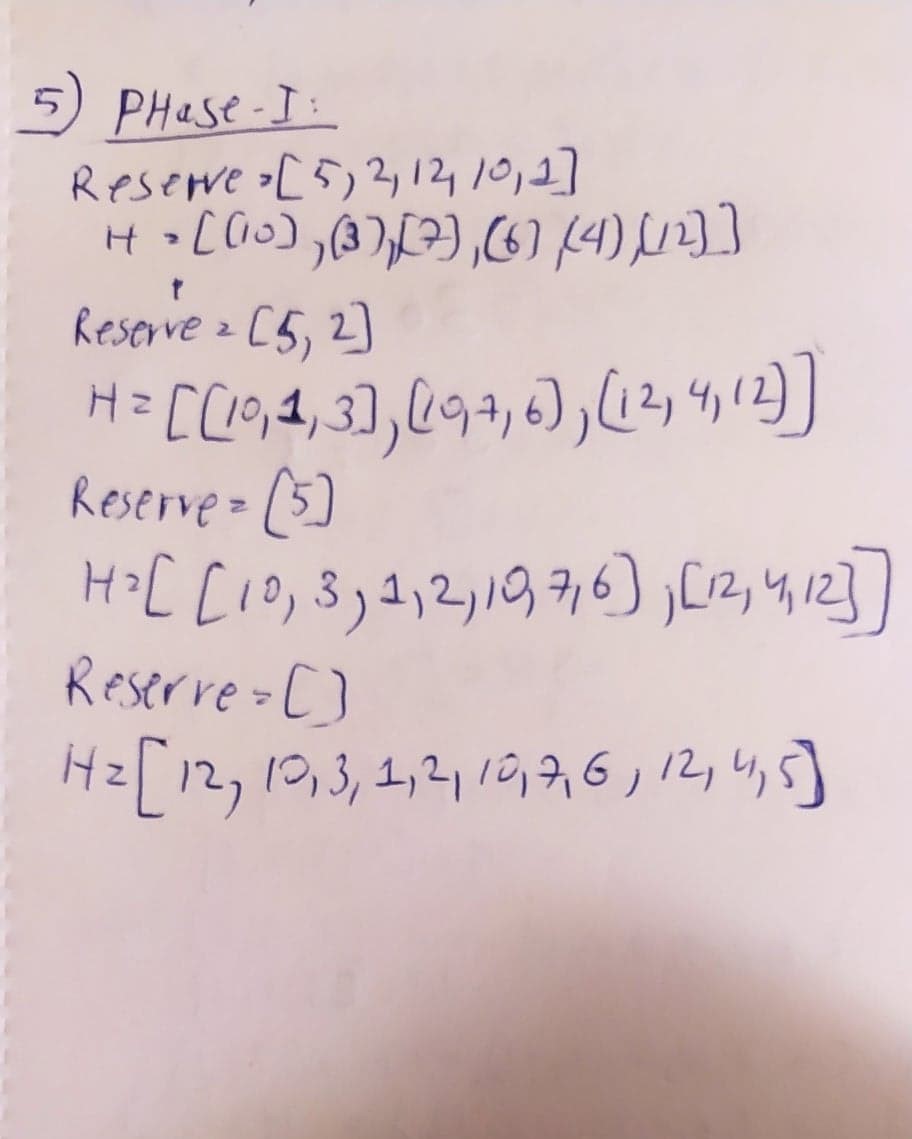 5) PHase-I:
Reserve =[5,2,12,10,1]
H = [[10],[3],[7],[6],[4],[12]]
Reserve = [5,2]
H = [[10,1,3],[10,7,6],[12,4,12]]
Reserve = [5]
H = [[10,3,1,2,10,7,6],[12,4,12]]
Reserve = []
H = [12,10,3,1,2,10,7,6,12,4,5]